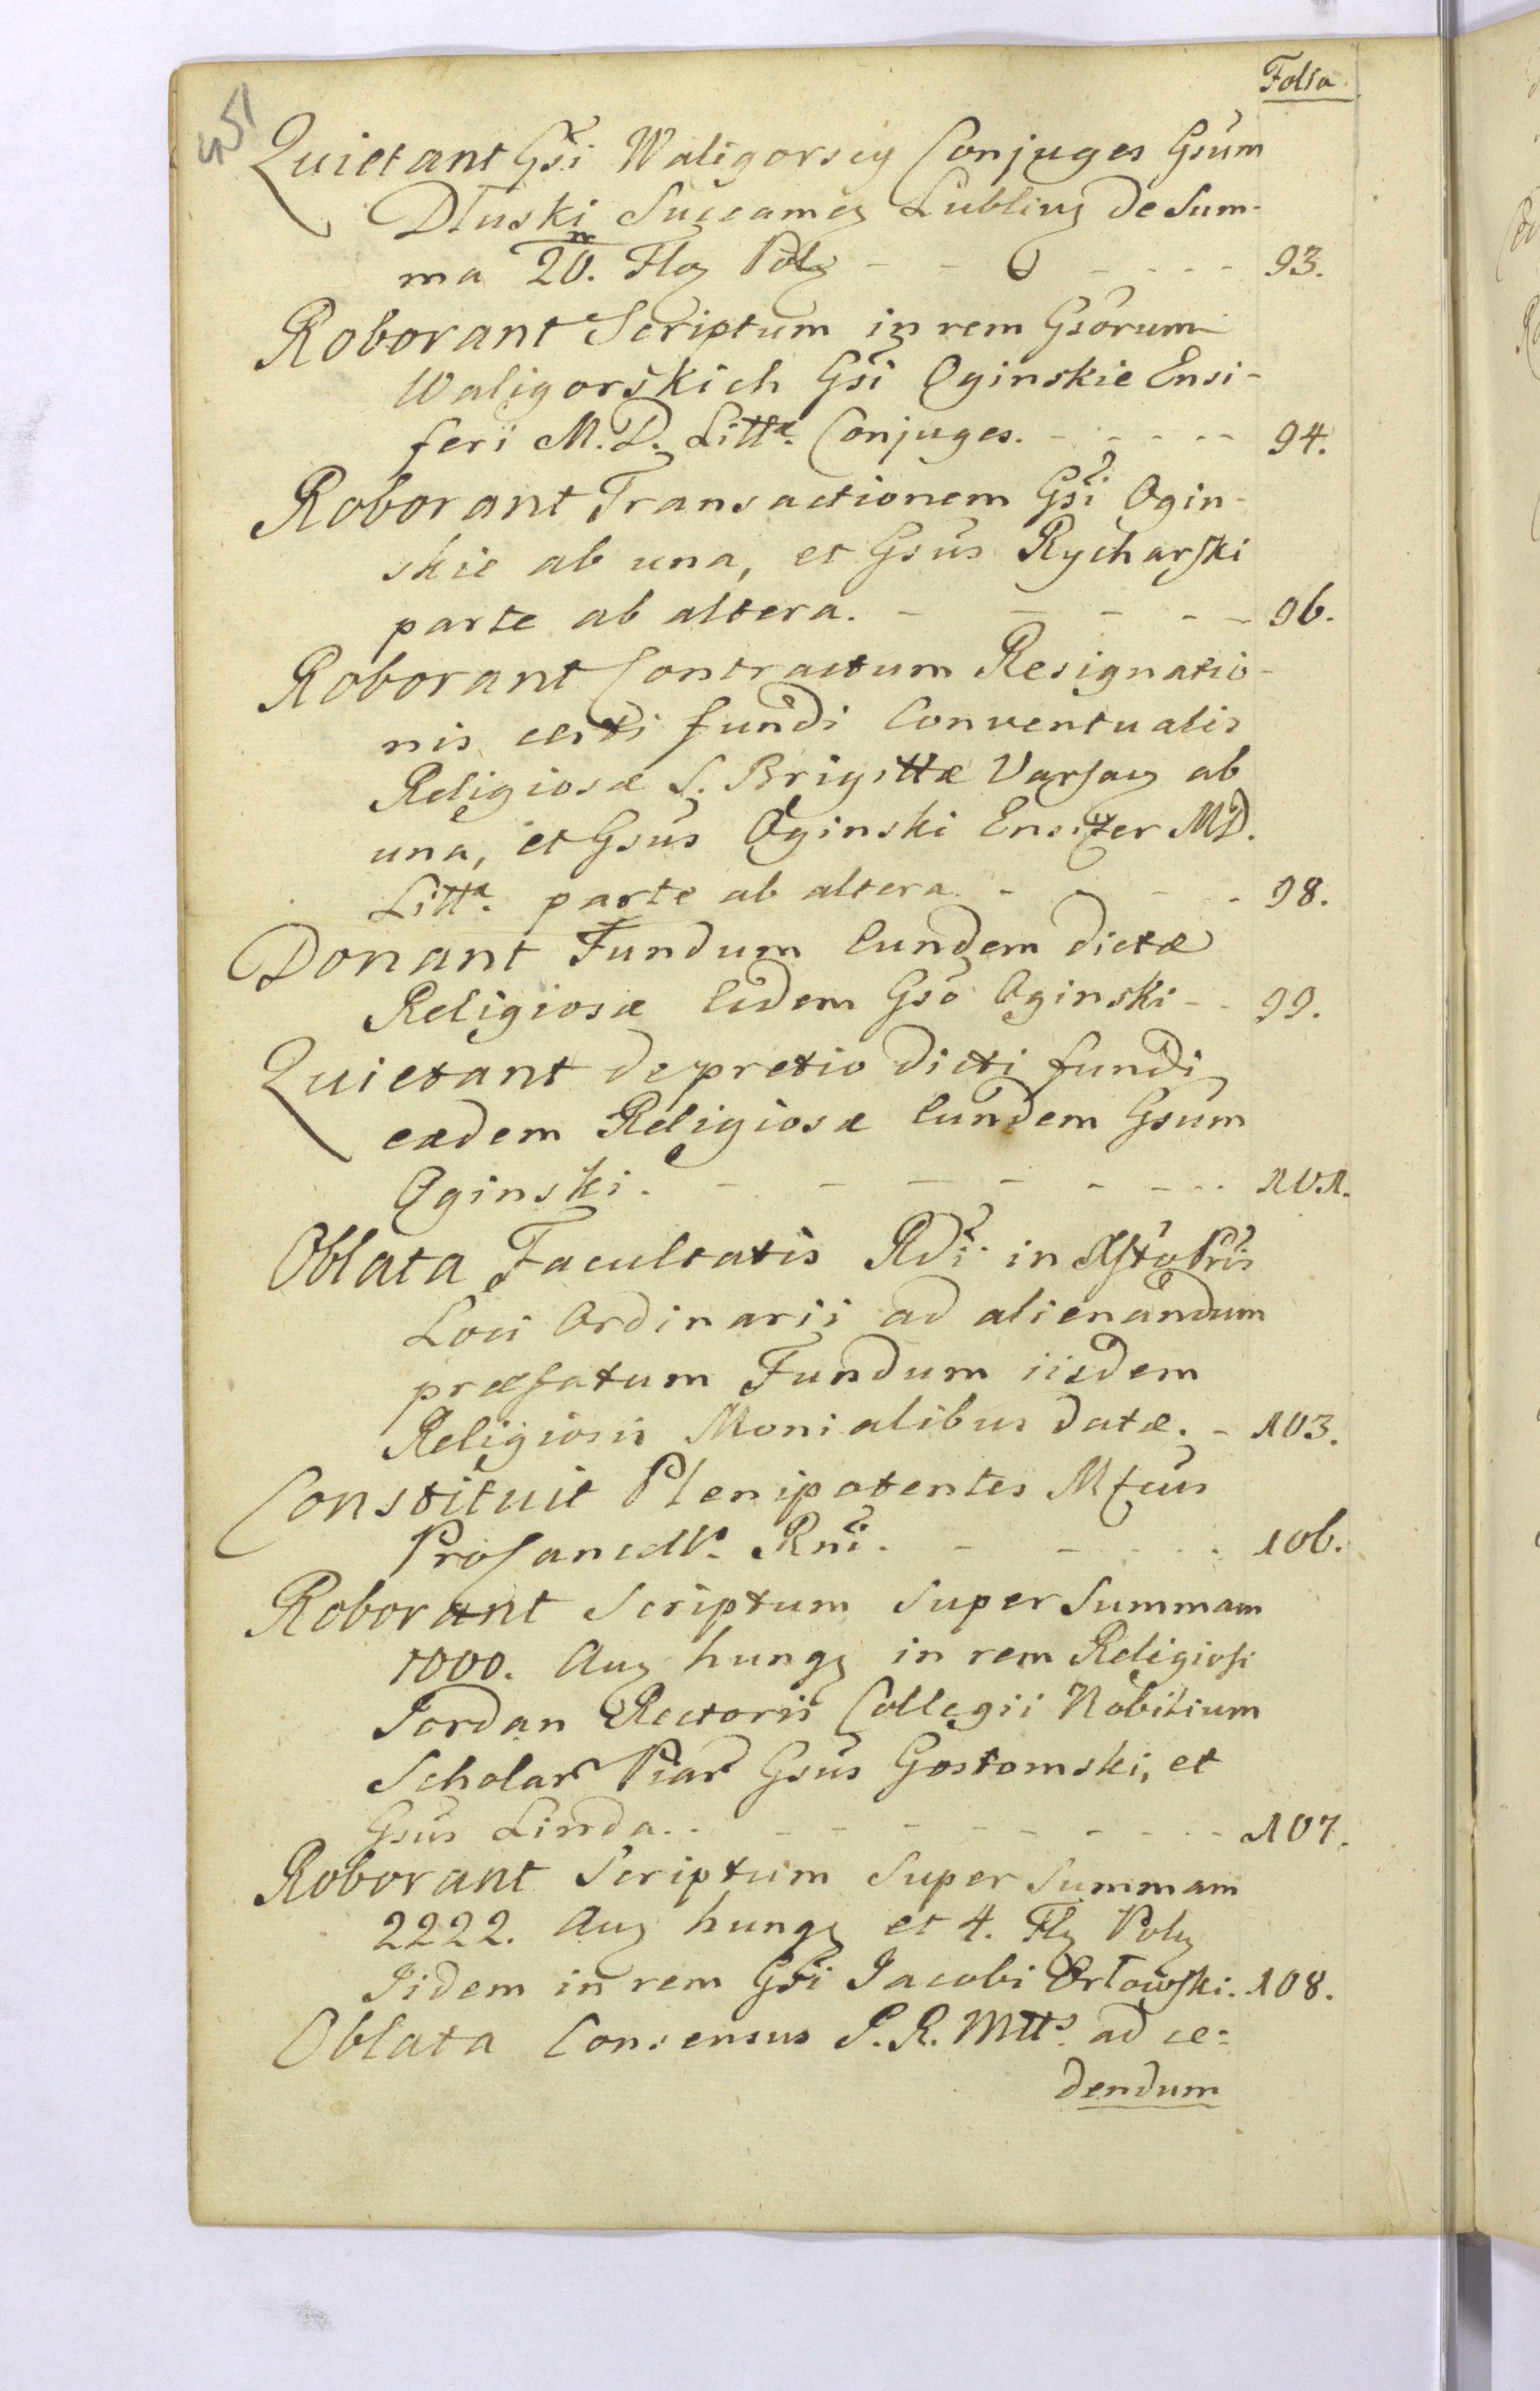 Folia.
451
Quietant Gsi Waligorscy Conjuges Gsum
Dłuski Succamer Lublin de Sum-
ma 20/m. Flor Pol - - - - - - 93.
Roborant Scriptum in rem Gsorum
Waligorskich Gsi Oginskie Ensi-
feri M. D. Litta. Conjuges. - - - - 94.
Roborant Transactionem Gsi Ogin-
skie ab una, et Gsus Rycharski
parte ab altera. - - - - - 96.
Roborant Contractum Resignatio-
nis certi fundi Conventualis
Religiosæ S. Brigittæ Varsav ab
una, et Gsus Oginski Ensifer M.D.
Litta. parte ab altera - - - - 98.
Donant Fundum Eundem dictæ
Religiosæ Eidem Gso Oginski - - 99.
Quietant de pretio dicti fundi
eædem Religiosæ Eundem Gsum
Oginski. - - - - - - - 101.
Oblata Facultatis Rdi in Xsto Pris
Loci Ordinarii ad alienandum
præfatum Fundum iisdem
Religiosis Monialibus datæ. - 103.
Constituit Plenipotentes Mfcus
Procancell. Rni. - - - - 106.
Roborant Scriptum super Summam
1000. Aur hung in rem Religiosi
Jordan Rectoris Collegii Nobilium
Scholar Piar Gsus Gostomski, et
Gsus Linda. - - - - - - - 107.
Roborant Scriptum super Summam
2222. Aur hung et 4. Fl Pol
Iidem in rem Gsi Jacobi Orłowski. 108.
Oblata Consensus S. R. Mtts. ad ce-
dendum